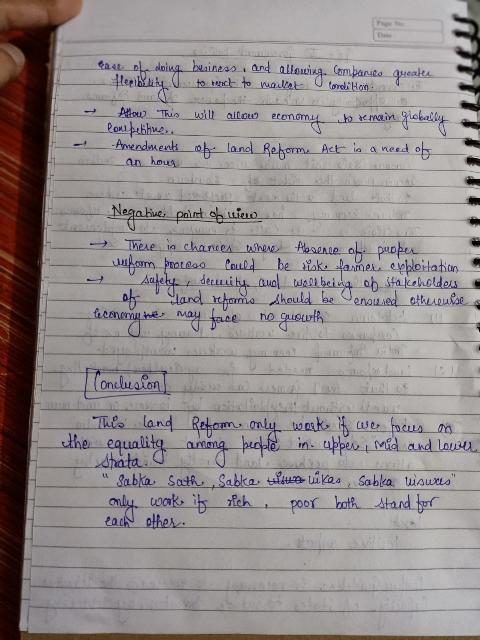 Page No:
Date:
ease of doing business, and allowing companies greater
flexibility to react to market condition.
→ Allow This will allow economy to remain globally
competitive..
→ Amendments of land Reform Act is a need of
an hour
Negative point of view
→ There is chances where Absence of proper
reform process could be risk farmer exploitation
→ safety, security and wellbeing of stakeholders
of land reforms should be ensured otherwise
economy may face no growth
Conclusion
This land Reform only work if we focus on
the equality among people in upper, mid and lower
strata.
"Sabka Sath, Sabka vikas, Sabka viswas"
only work if rich, poor both stand for
each other.